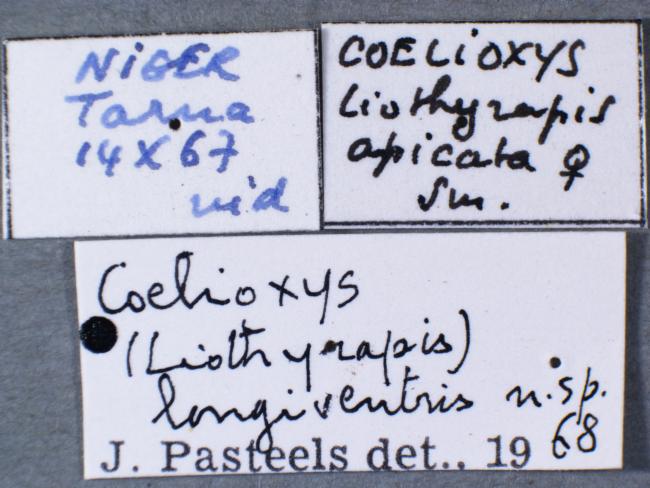 NIGER
Tarna
14 X 67
nid
COELIOXYS
Liothyrapis
apicata ♀
Sm.
Coelioxys
(Liothyrapis)
longiventris n.sp.
J. Pasteels det.. 19 68